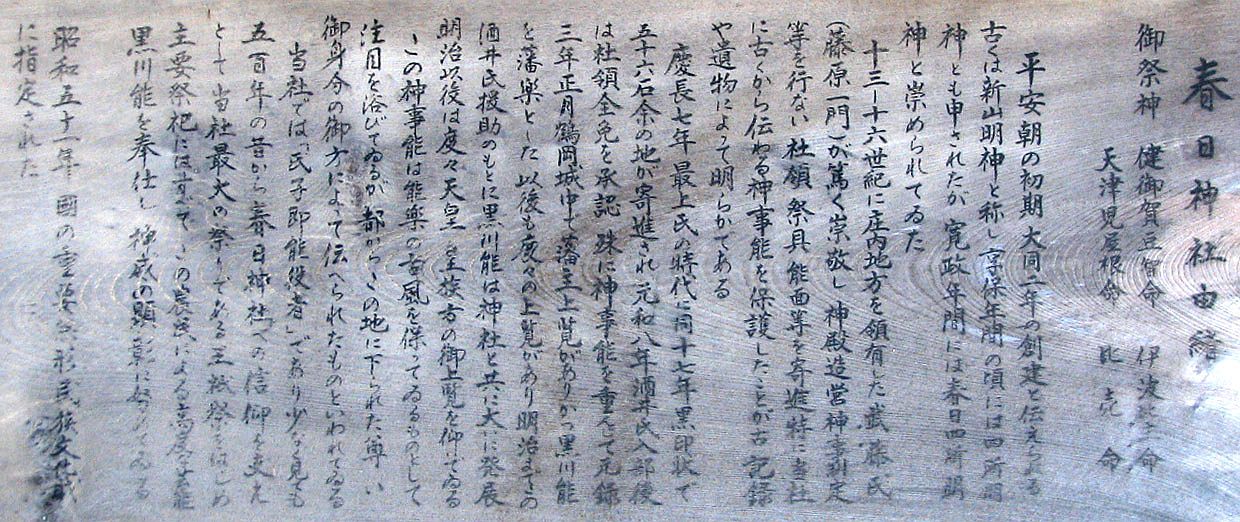 春日神社由緒
御祭神 健御賀豆智命 伊波比主命
天津児屋根命 比売命
平安朝の初期大同二年の創建と伝えられる
古くは新山明神と称し 享保年間の頃には四所明
神とも申されたが 寛政年間には春日四所明
神と崇められてゐた
十三―十六世紀に庄内地方を領有した武藤氏
(藤原一門)が篤く崇敬し 神殿造営神事制定
等を行ない 社領 祭具 能面等を寄進特に当社
に古くから伝わる神事能を保護したことが古記録
や遺物によって明らかである
慶長七年 最上氏の時代に同十七年黒印状で
五十六石余の地が寄進され 元和八年酒井氏入部後
は社領全免を承認 殊に神事能を重んて元禄
三年正月鶴岡城中で藩主上覧がありかつ黒川能
を藩楽とした 以後も度々の上覧があり明治までの
酒井氏援助のもとに黒川能は神社と共に大いに発展
明治以後は度々天皇 皇族方の御上覧を仰でゐる
この神事能は能楽の古風を保ってゐるものとして
注目を浴びてゐるが 都からこの地に下られた尊い
御身分の御方によって伝へられたものといわれてゐる
当社では「氏子即能役者」であり少なく見ても
五百年の昔から春日神社への信仰を支え
として 当社最大の祭りである王祇祭をはじめ
主要祭祀にはすべてこの農民による
黒川能を奉仕し 神威の顕彰に努めてゐる
昭和五十一年 國の重要無形民族文化財
に指定された